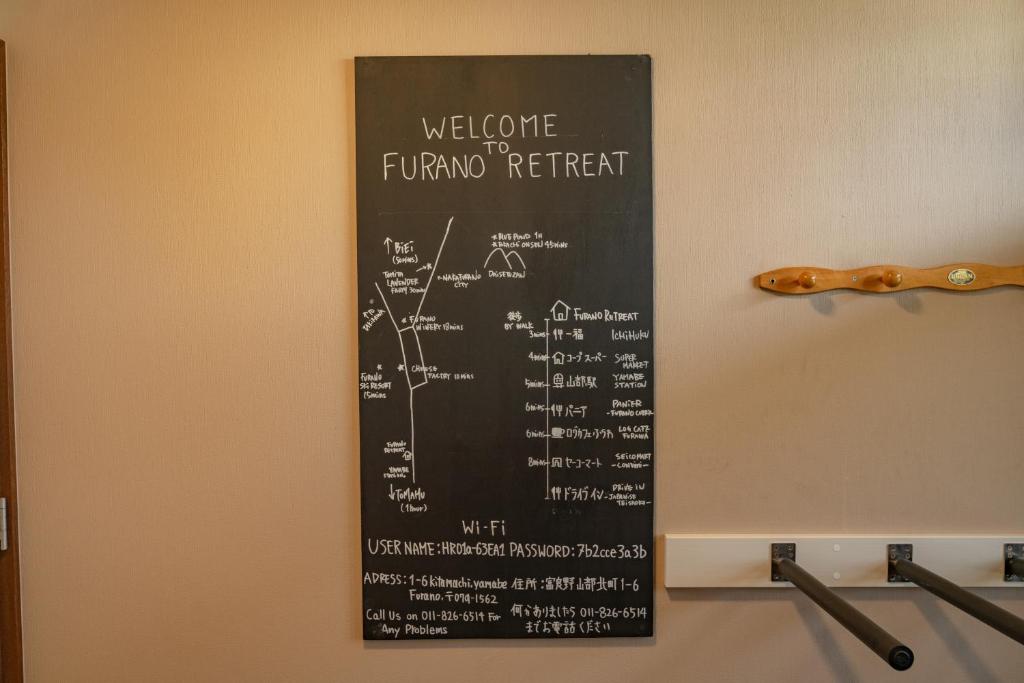 WELCOME
TO
FURANO RETREAT
↑ BiEi
(50mins)
* BLUE POND 1H
* FUKIAGE ONSEN 45mins
DAISETSUZAN
TOMITA
LAVENDER
FARM 30min
NAKAFURANO
CITY
* FURANO
WINERY 18mins
CHEESE
FACTORY 18mins
FURANO
SKI RESORT
15mins
FURANO
RETREAT
YAMABE
↓ TOMAMU
(1hour)
徒歩
BY WALK
FURANO RETREAT
3mins 一福 ICHIFUKU
4mins コープスーパー SUPER
MARKET
5mins 山部駅 YAMABE
STATION
6mins パニア PANiER
-FURANO CURRY-
6mins ログカフェふうわ LOG CAFE
FUUWA
8mins セーコーマート SEICOMART
-CONVENI-
ドライブイン DRIVE IN
-JAPANESE
TEISHOKU-
Wi-Fi
USER NAME:HR01a-63EA1 PASSWORD:7b2cce3a3b
ADRESS:1-6 kitamachi.yamabe
Furano.〒079-1562
住所:富良野山部北町1-6
Call Us on 011-826-6514 For
Any Problems
何かありましたら 011-826-6514
までお電話ください